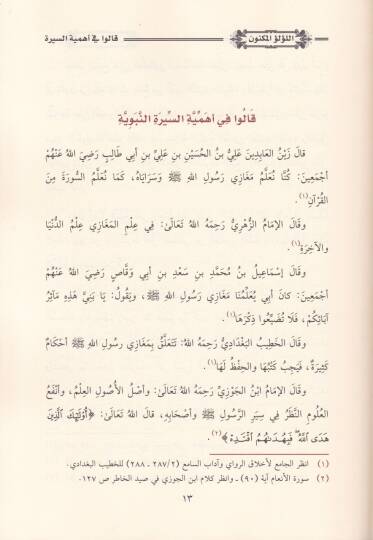 اللؤلؤ المكنون
قالوا في أهمية السيرة
قَالُوا فِي أَهَمِّيَّةِ السِّيرَةِ النَّبَوِيَّةِ
قالَ زَيْنُ العَابِدِينَ عَلِيُّ بنُ الحُسَيْنِ بنِ عَلِيِّ بنِ أَبِي طَالِبٍ رَضِيَ اللهُ عَنْهُمْ
أَجْمَعِينَ: كُنَّا نُعَلَّمُ مَغَازِي رَسُولِ اللهِ ﷺ وَسَرَايَاهُ، كَمَا نُعَلَّمُ السُّورَةَ مِنَ
القُرْآنِ(١).
وقَالَ الإمَامُ الزُّهْرِيُّ رَحِمَهُ اللهُ تَعَالَىٰ: فِي عِلْمِ المَغَازِي عِلْمُ الدُّنْيَا
والآخِرَةِ(١).
وقَالَ إسْمَاعِيلُ بنُ مُحَمَّدِ بنِ سَعْدِ بنِ أَبِي وَقَّاصٍ رَضِيَ اللهُ عَنْهُمْ
أَجْمَعِينَ: كانَ أَبِي يُعَلِّمُنَا مَغَازِي رَسُولِ اللهِ ﷺ، ويَقُولُ: يَا بَنِيَّ هَذِهِ مَآثِرُ
آبَائِكُمْ، فَلَا تُضَيِّعُوا ذِكْرَهَا(١).
وقَالَ الخَطِيبُ البَغْدَادِيُّ رَحِمَهُ اللهُ: تَتَعَلَّقُ بِمَغَازِي رسُولِ اللهِ ﷺ أَحْكَامٌ
كَثِيرَةٌ، فَيَجِبُ كَتْبُهَا والحِفْظُ لَهَا(١).
وقَالَ الإمَامُ ابْنُ الجَوْزِيِّ رَحِمَهُ اللهُ تَعَالَىٰ: وأَصْلُ الأُصُولِ العِلْمُ، وأَنْفَعُ
العُلُومِ النَّظَرُ فِي سِيَرِ الرَّسُولِ ﷺ وأَصْحَابِهِ، قالَ اللهُ تَعَالَىٰ: ﴿أُوْلَٰٓئِكَ ٱلَّذِينَ
هَدَى ٱللَّهُۖ فَبِهُدَىٰهُمُ ٱقْتَدِهْ﴾(٢).
(١) انظر الجامع لأخلاق الرواي وآداب السامع (٢٨٧/٢ ـ ٢٨٨) للخطيب البغدادي.
(٢) سورة الأنعام آية (٩٠) ـ وانظر كلام ابن الجوزي في صيد الخاطر ص ١٢٧.
١٣